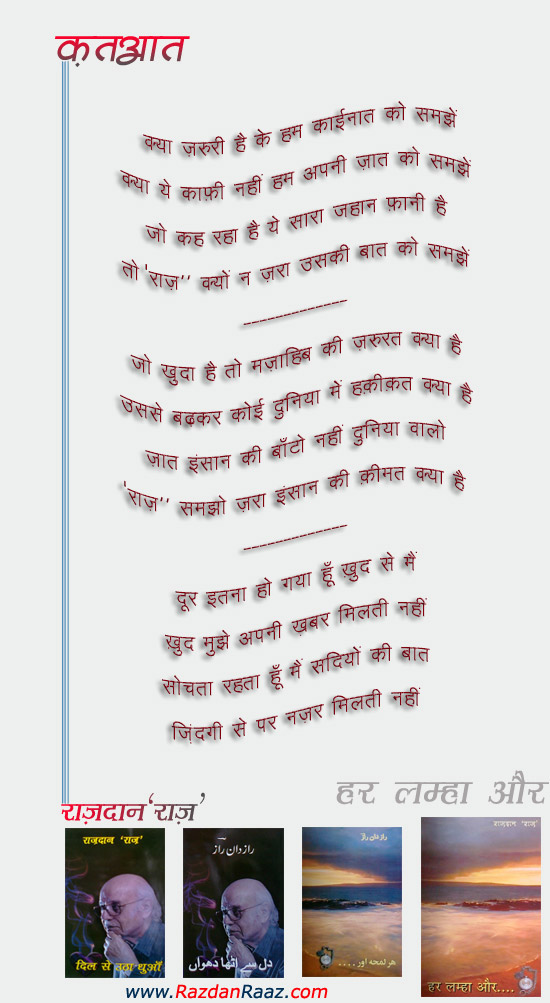 क़तआत
क्या ज़रुरी है के हम काईनात को समझें
क्या ये काफ़ी नहीं हम अपनी ज़ात को समझें
जो कह रहा है ये सारा जहान फ़ानी है
तो 'राज़'' क्यों न ज़रा उसकी बात को समझें
--------------------
जो खुदा है तो मज़ाहिब की ज़रुरत क्या है
उससे बढ़कर कोई दुनिया में हक़ीक़त क्या है
ज़ात इंसान की बाँटो नहीं दुनिया वालो
'राज़'' समझो ज़रा इंसान की क़ीमत क्या है
--------------------
दूर इतना हो गया हूँ ख़ुद से मैं
ख़ुद मुझे अपनी ख़बर मिलती नहीं
सोचता रहता हूँ मैं सदियों की बात
ज़िंदगी से पर नज़र मिलती नहीं
हर लम्हा और
राज़दान 'राज़'
राज़दान 'राज़'
दिल से उठा धुआँ
راز دان راز
دل سے اٹھا دھواں
راز دان راز
ھر لمحہ اور....
राज़दान 'राज़'
हर लम्हा और....
www.RazdanRaaz.com